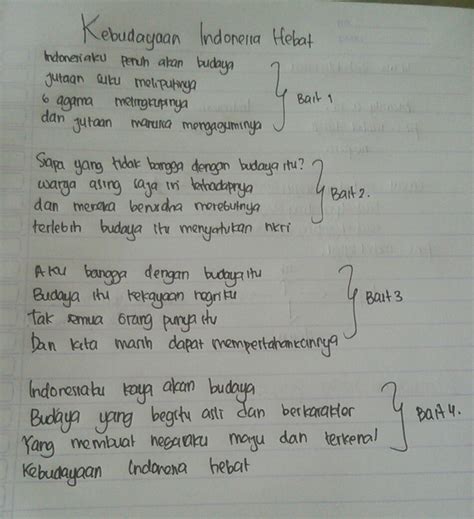 Kebudayaan Indonesia Hebat
Indonesiaku penuh akan budaya
jutaan suku meliputinya
6 agama melingkupinya
dan jutaan manusia mengaguminya
Bait 1
Sapa yang tidak bangga dengan budaya itu?
warga asing saja iri terhadapnya
dan mereka berusaha merebutnya
terlebih budaya itu menyatukan nkri
Bait 2.
Aku bangga dengan budaya itu
Budaya itu kekayaan negriku
Tak semua orang punya itu
Dan kita masih dapat mempertahankannya
Bait 3
Indonesiaku kaya akan budaya
Budaya yang begitu asli dan berkarakter
Yang membuat negaraku maju dan terkenal
Kebudayaan Indonesia hebat
Bait 4.